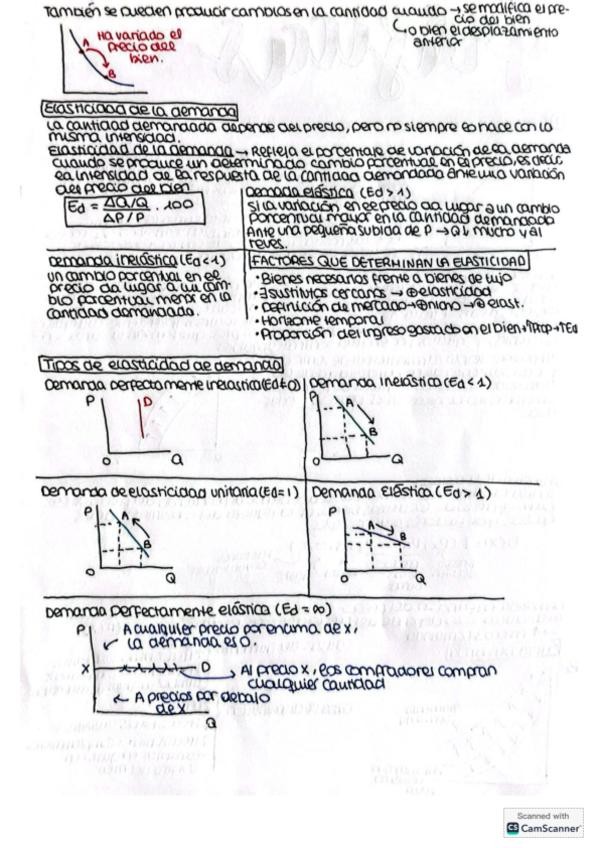 También se pueden producir cambios en la cantidad cuando → se modifica el pre-
cio del bien
↳ o bien el desplazamiento
anterior
Ha variado el
precio del
bien.
A
B
Elasticidad de la demanda
La cantidad demandada depende del precio, pero no siempre lo hace con la
misma intensidad.
Elasticidad de la demanda → Refleja el porcentaje de variación de la demanda
cuando se produce un determinado cambio porcentual en el precio, es decir,
la intensidad de la respuesta de la cantidad demandada ante una variación
del precio del bien
Ed = ΔQ/Q / ΔP/P . 100
Demanda elástica (Ed > 1)
Si la variación en el precio da lugar a un cambio
porcentual mayor en la cantidad demandada
Ante una pequeña subida de P → Q↓ mucho y al
revés.
Demanda inelástica (Ed < 1)
un cambio porcentual en el
precio da lugar a un cam-
bio porcentual menor en la
cantidad demandada.
FACTORES QUE DETERMINAN LA ELASTICIDAD
• Bienes necesarios frente a bienes de lujo
• ∃ sustitutos cercanos → ⊕ elasticidad
• Definición de mercado → ⊕ → ⊕ elast.
• Horizonte temporal
• Proporción del ingreso gastado en el bien ↑Prop → ↑Ed
Tipos de elasticidad de demanda
Demanda perfectamente inelástica (Ed=0)
P
D
O
Q
Demanda Inelástica (Ed < 1)
P
A
B
O
Q
Demanda de elasticidad unitaria (Ed=1)
P
A
B
O
Q
Demanda Elástica (Ed > 1)
P
A
B
O
Q
Demanda perfectamente elástica (Ed = ∞)
P
A cualquier precio por encima de x,
la demanda es 0.
x
D
→ Al precio x, los compradores compran
cualquier cantidad
← A precios por debajo
de x
Q
Scanned with
CS CamScanner